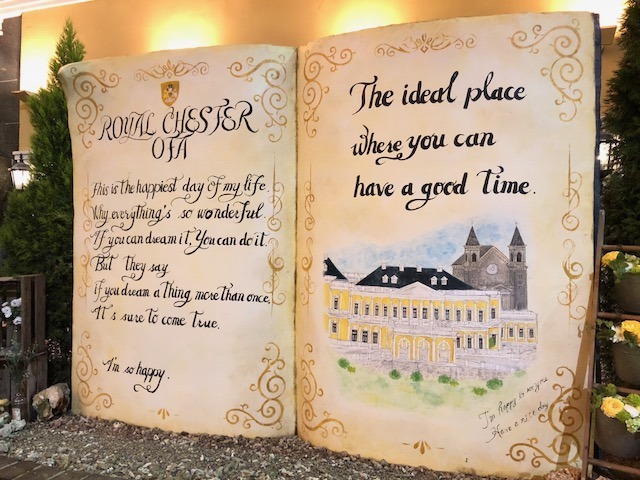 ROYAL CHESTER
OTA
This is the happiest day of my life.
Why everything's so wonderful.
If you can dream it, You can do it.
But they say
if you dream a thing more than once,
It's sure to come true.
I'm so happy.
The ideal place
where you can
have a good time.
I'm happy to see you
Have a nice day